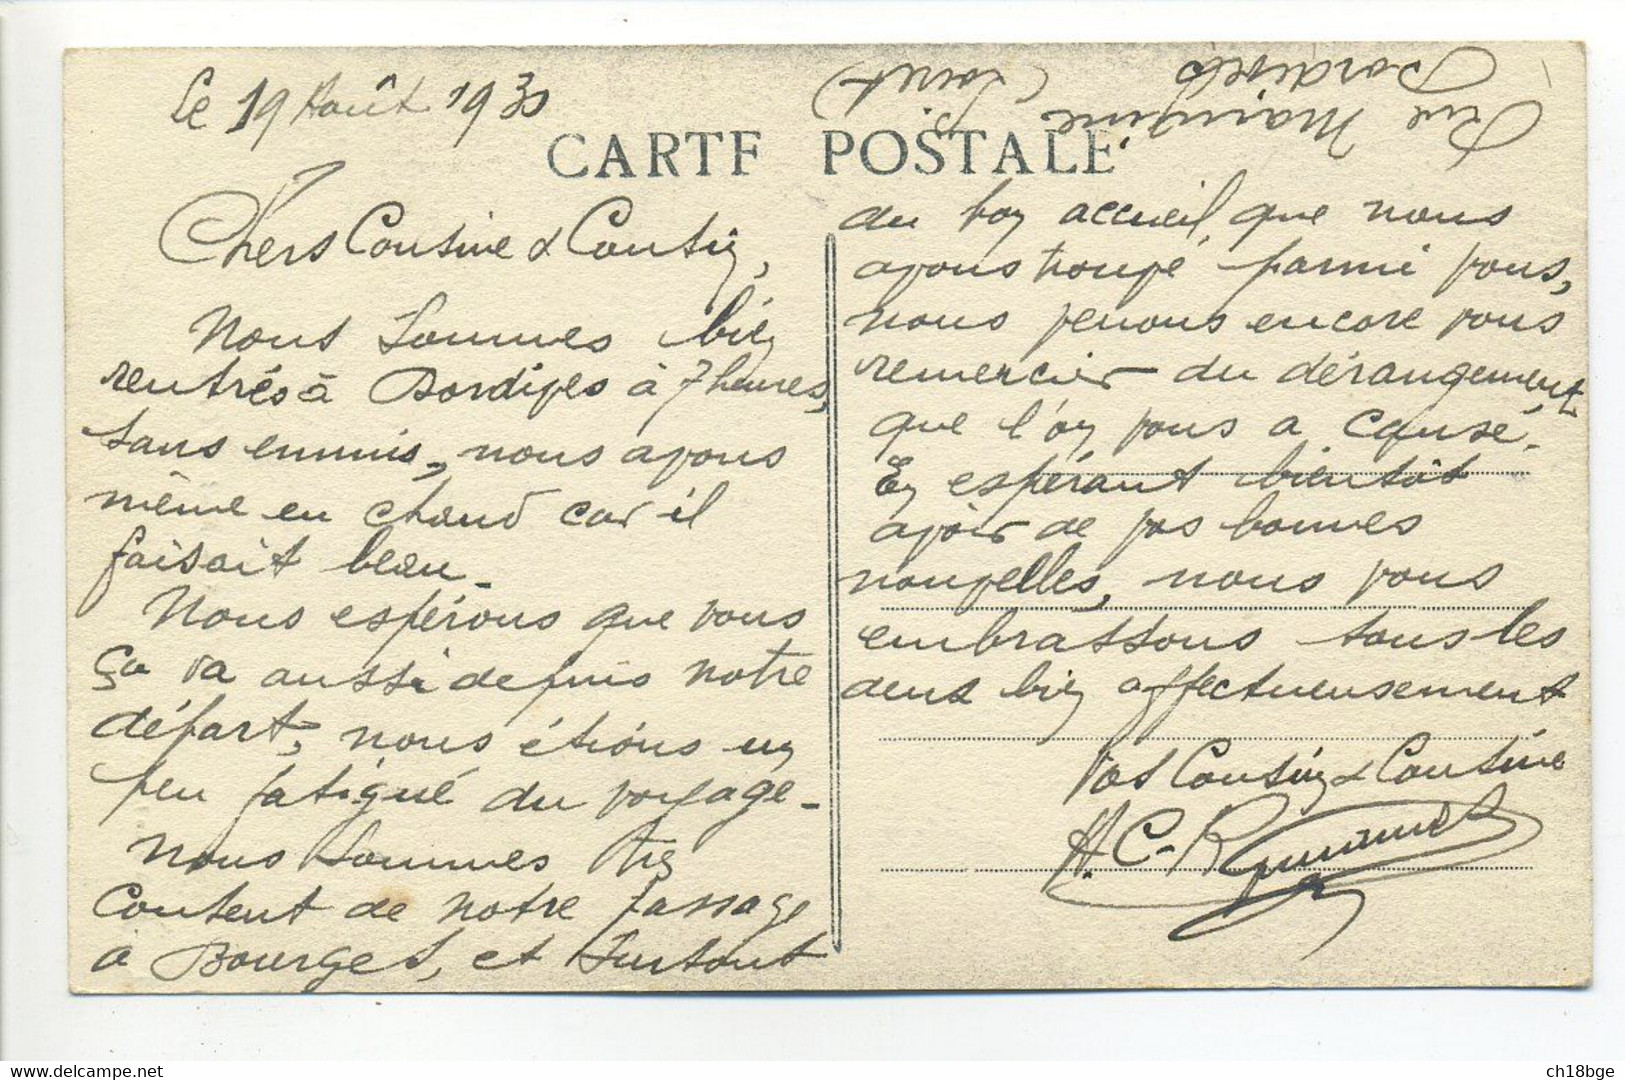 Le 19 Août 1930
CARTE POSTALE
Chers Cousine & Cousin,
Nous sommes bien
rentrés à Bordives à 7 heures,
sans ennuis, nous avons
même eu chaud car il
faisait beau.
Nous espérons que vous
ça va aussi depuis notre
départ, nous étions un
peu fatigué du voyage.
Nous sommes très
content de notre passage
à Bourges, et surtout
du bon accueil, que nous
avons trouvé parmi vous,
nous venons encore vous
remercier du dérangement
que l'on vous a causé.
En espérant bientôt
avoir de vos bonnes
nouvelles, nous vous
embrassons tous les
deux bien affectueusement
Vos Cousin & Cousine
H. C-R
Rue
Bordives
(Loiret)
ch18bge